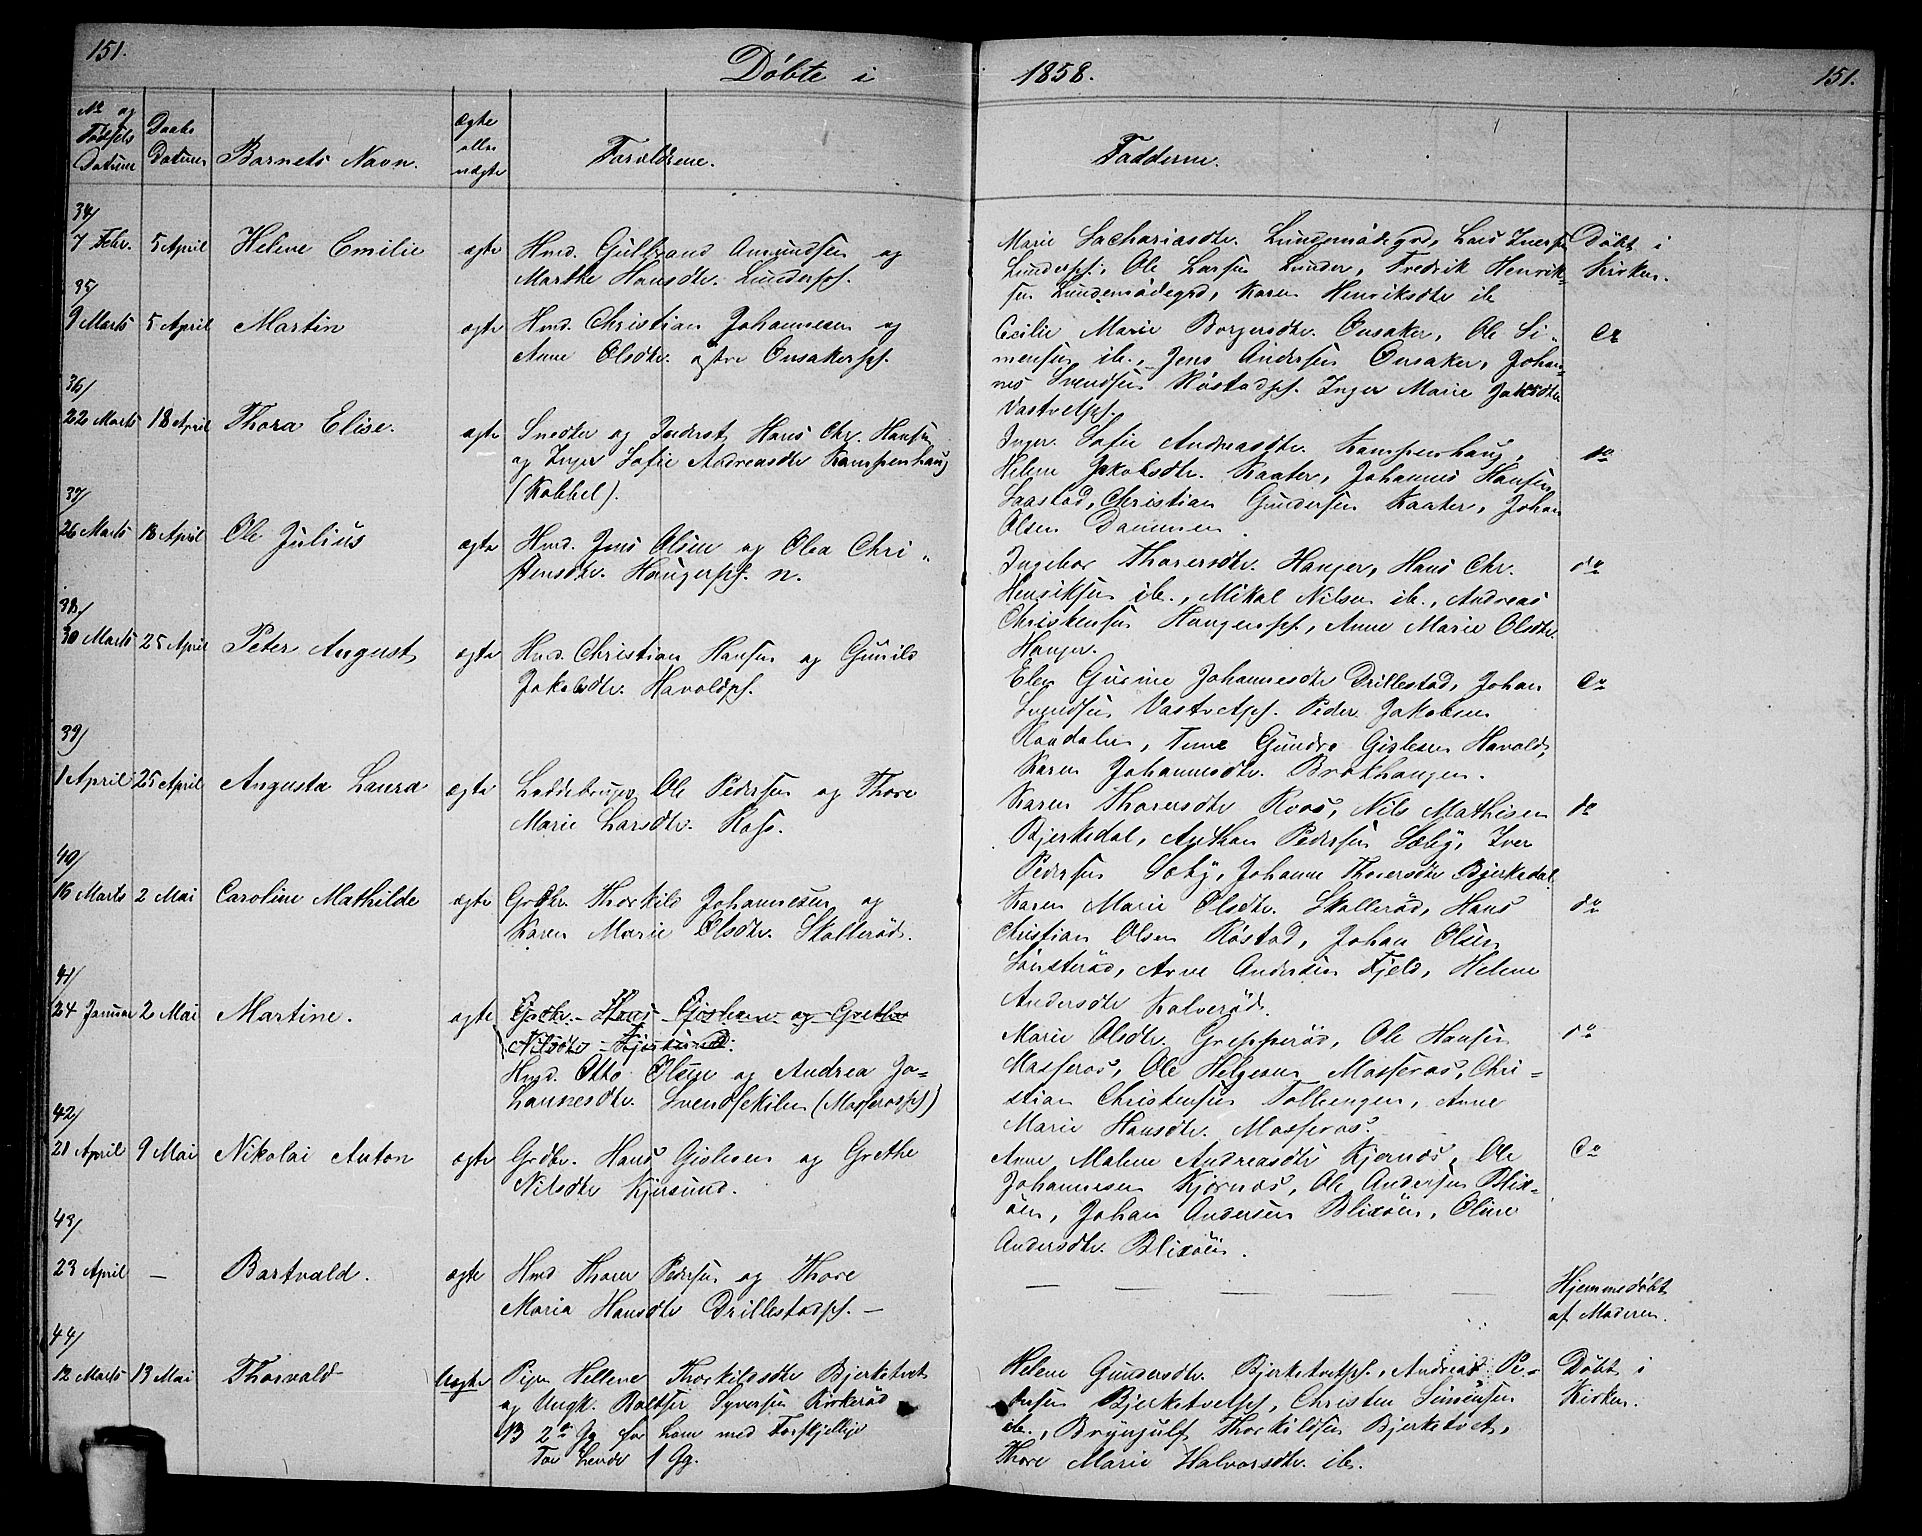 151. Døbte i 1858. 151.
No og Fødsels Datum
Daabs Datum
Barnets Navn.
Ægte eller uægte
Forældrene.
Fadderne.
34/
7 Febr. 5 April Helene Emilie ægte Hmd. Gulbrand Amundsen og
Marthe Hansdtr. Lunderpf.
Marie Sachariasdtr. Lundemødegrd, Lars Iversen
Lunderpf., Ole Larsen Lunder, Fredrik Henrik-
sen Lundemødegrd, Karen Henriksdtr ib
Døbt i
Kirken.
35/
9 Marts 5 April Martin ægte Hmd. Christian Johannesen og
Anne Olsdtr. østre Onsakerpf.
Cecilie Marie Borgersdtr. Onsaker, Ole Si-
mensen ib., Jens Andersen Onsaker, Johan-
nes Svendsen Røstadpf. Inger Marie Jakobsdtr
Vastvetpf.
do
36/
22 Marts 18 April Thora Elise. ægte Snedker og Inderst Hans Chr. Hansen
og Inger Sofie Andreasdtr Kampenhaug
(Kobbel).
Inger Sofie Andreasdtr. Kampenhaug,
Helene Jakobsdtr. Kaater, Johannes Hansen
Saastad, Christian Gundersen Kaater, Johan
Olsen Dammen.
do
37/
26 Marts 18 April Ole Julius ægte Hmd. Jens Olsen og Olea Chri-
stensdtr. Haugerpf. n.
Ingebor Thorersdtr. Hauger, Hans Chr.
Henriksen ib., Mikal Nilsen ib., Andreas
Christensen Haugerpf., Anne Marie Olsdtr.
Hauger.
do
38/
30 Marts 25 April Peter August ægte Hmd. Christian Hansen og Gunild
Jakobsdtr. Havoldpf.
Elen Gurine Johannesdtr Drillestad, Johan
Svendsen Vastvetpf. Peder Jakobsen
Gundro Gislesen Havold,
Karen Johannesdtr. Brækhaugen.
do
39/
1 April 25 April Augusta Laura ægte Ole Pedersen og Thore
Marie Larsdtr. Ross.
Karen Thorersdtr Roos, Nils Mathisen
Bjerkedal, Anthon Pedersen Sæby, Iver
Pedersen Sæby, Johanne Thorersdtr Bjerkedal.
do
40/
16 Marts 2 Mai Caroline Mathilde ægte Grdbr. Thorkild Johannesen og
Karen Marie Olsdtr. Skallerød.
Karen Marie Olsdtr. Skallerød, Hans
Christian Olsen Røstad, Johan Olsen
Sønsterød, Arne Andersen Fjeld, Helene
Andersdtr Kalverød.
do
41/
24 Januar 2 Mai Martine. ægte Grdbr. Hans Gislesen og Grethe
Nilsdtr Kjersund.
Hmd. Otto Olsen og Andrea Jo-
hannesdtr. Svendsekilen (Masserospf)
Marie Olsdtr. Grepperød, Ole Hansen
Masseros, Ole Helgesen Masseros, Chri-
stian Christensen Tollengen, Anne
Marie Hansdtr. Masseros.
do
42/
21 April 9 Mai Nikolai Anton ægte Grdbr. Hans Gislesen og Grethe
Nilsdtr Kjersund.
Anne Malene Andreasdtr Kjernæs, Ole
Johannesen Kjernæs, Ole Andersen Blix-
øen, Johan Andersen Blixøen, Oline
Andersdtr. Blixøen.
do
43/
23 April – Bartvald. ægte Hmd Thorer Pedersen og Thore
Maria Hansdtr Drillestadpf. –
— — — —
Hjemmedøbt
af Moderen.
44/
12 Marts 13 Mai Thorvald Uægte Pige Hellene Thorkildsdtr Bjerketvet
og Ungk. Baltser Syversen Kirkerød
NB 2den Gg for hende med Forskjellige
for hende 1 Gg.
Helene Gundersdtr. Bjerketvetpf., Andreas Pe-
dersen Bjerketvetpf, Christen Simensen
ib., Brynjulf Thorkildsen Bjerketvet,
Thore Marie Halvorsdtr. ib.
Døbt i
Kirken.